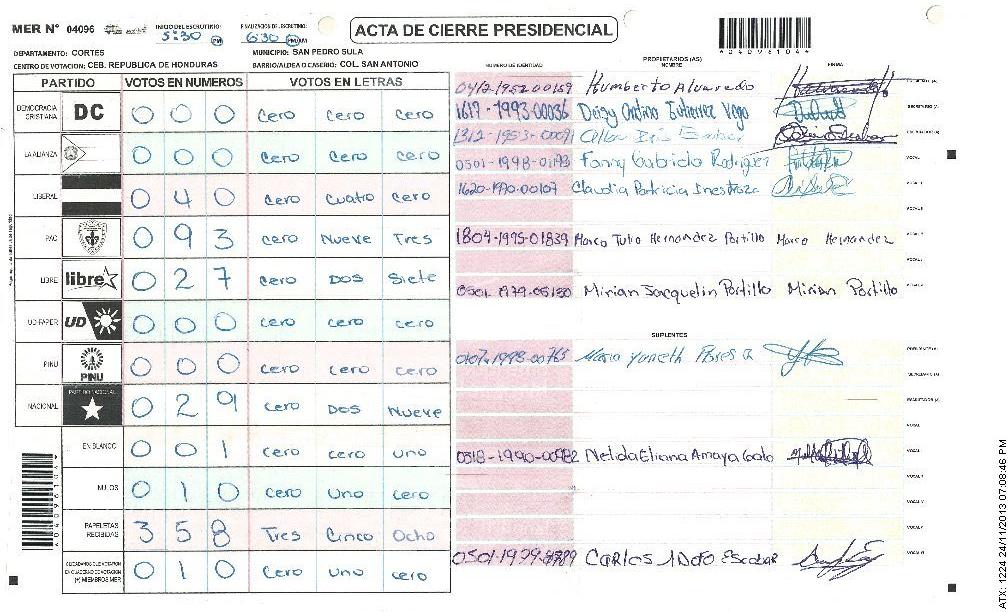 MER Nº 04096
INICIO DEL ESCRUTINIO: 5:30 PM
FINALIZACION DE ESCRUTINIO: 6:30 PM/AM
ACTA DE CIERRE PRESIDENCIAL
04096104
DEPARTAMENTO: CORTES
MUNICIPIO: SAN PEDRO SULA
CENTRO DE VOTACION: CEB. REPUBLICA DE HONDURAS
BARRIO/ALDEA O CASERIO: COL. SAN ANTONIO
PARTIDO VOTOS EN NUMEROS VOTOS EN LETRAS
DEMOCRACIA CRISTIANA DC 0 0 0 cero cero cero
LA ALIANZA 0 0 0 cero cero cero
LIBERAL 0 4 0 cero cuatro cero
PAC 0 9 3 cero Nueve Tres
LIBRE libre 0 2 7 cero Dos Siete
UD-FAPER UD 0 0 0 cero cero cero
PINU PINU 0 0 0 cero cero cero
NACIONAL PARTIDO NACIONAL 0 2 9 cero Dos Nueve
EN BLANCO 0 0 1 cero cero uno
NULOS 0 1 0 cero uno cero
PAPELETAS RECIBIDAS 3 5 8 Tres Cinco Ocho
(+) MIEMBROS MER 0 1 0 cero uno cero
PROPIETARIOS (AS)
NUMERO DE IDENTIDAD NOMBRE FIRMA
0412-1952-00159 Humberto Alvarado
1617-1993-00036 Deisy Gutierrez Vega
1312-1953-00091
0501-1998-01193 Fanny Gabriela Rodriguez
VOCAL I
1620-1990-00107 Claudia Patricia Inestroza
1804-1995-01839 Marco Tulio Hernandez Portillo Marco Hernandez
0501 1979-05130 Mirian Jacquelin Portillo Mirian Portillo
SUPLENTES
0107-1998-00765 Maria Yaneth Flores
0318-1990-00982 Nelida Eliana Amaya
CARLOS Escobar
04096104
ATX: 1224 24/11/2013 07:08:46 PM